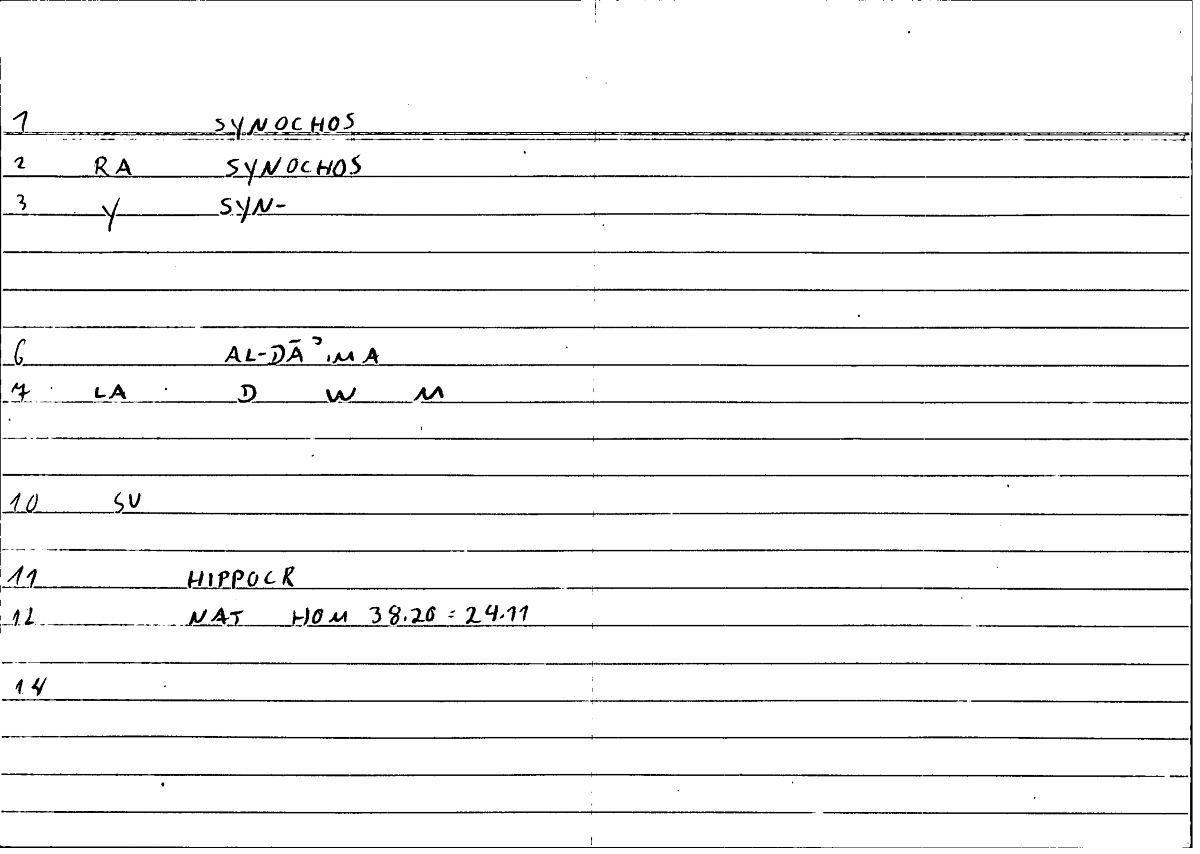 1 SYNOCHOS
2 RA SYNOCHOS
3 Y SYN-
6 AL-DĀʾIMA
7 LA D W M
10 SU
11 HIPPOCR
12 NAT HOM 38.20 = 24.11
14